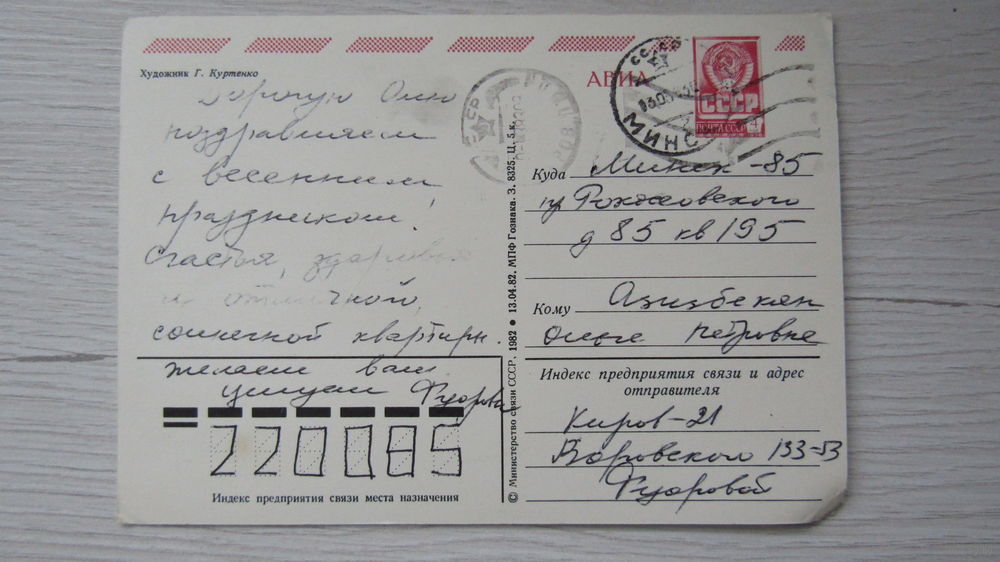 Художник Г. Куртенко
АВИА
МИНСК
СССР
ПОЧТА СССР 4
Дорогую Олю
поздравляем
с весенним
праздником!
Счастья, здоровья
и отличной,
солнечной квартиры.
желаем вам
Куда Минск-85
пр Рокоссовского
д 85 кв 195
Кому Азизбекян
Ольге Петровне
Индекс предприятия связи и адрес
отправителя
Киров-21
Воровского 133-53
220085
Индекс предприятия связи места назначения
© Министерство связи СССР. 1982 • 13.04.82. МПФ Гознака. З. 8325. Ц. 5 к.